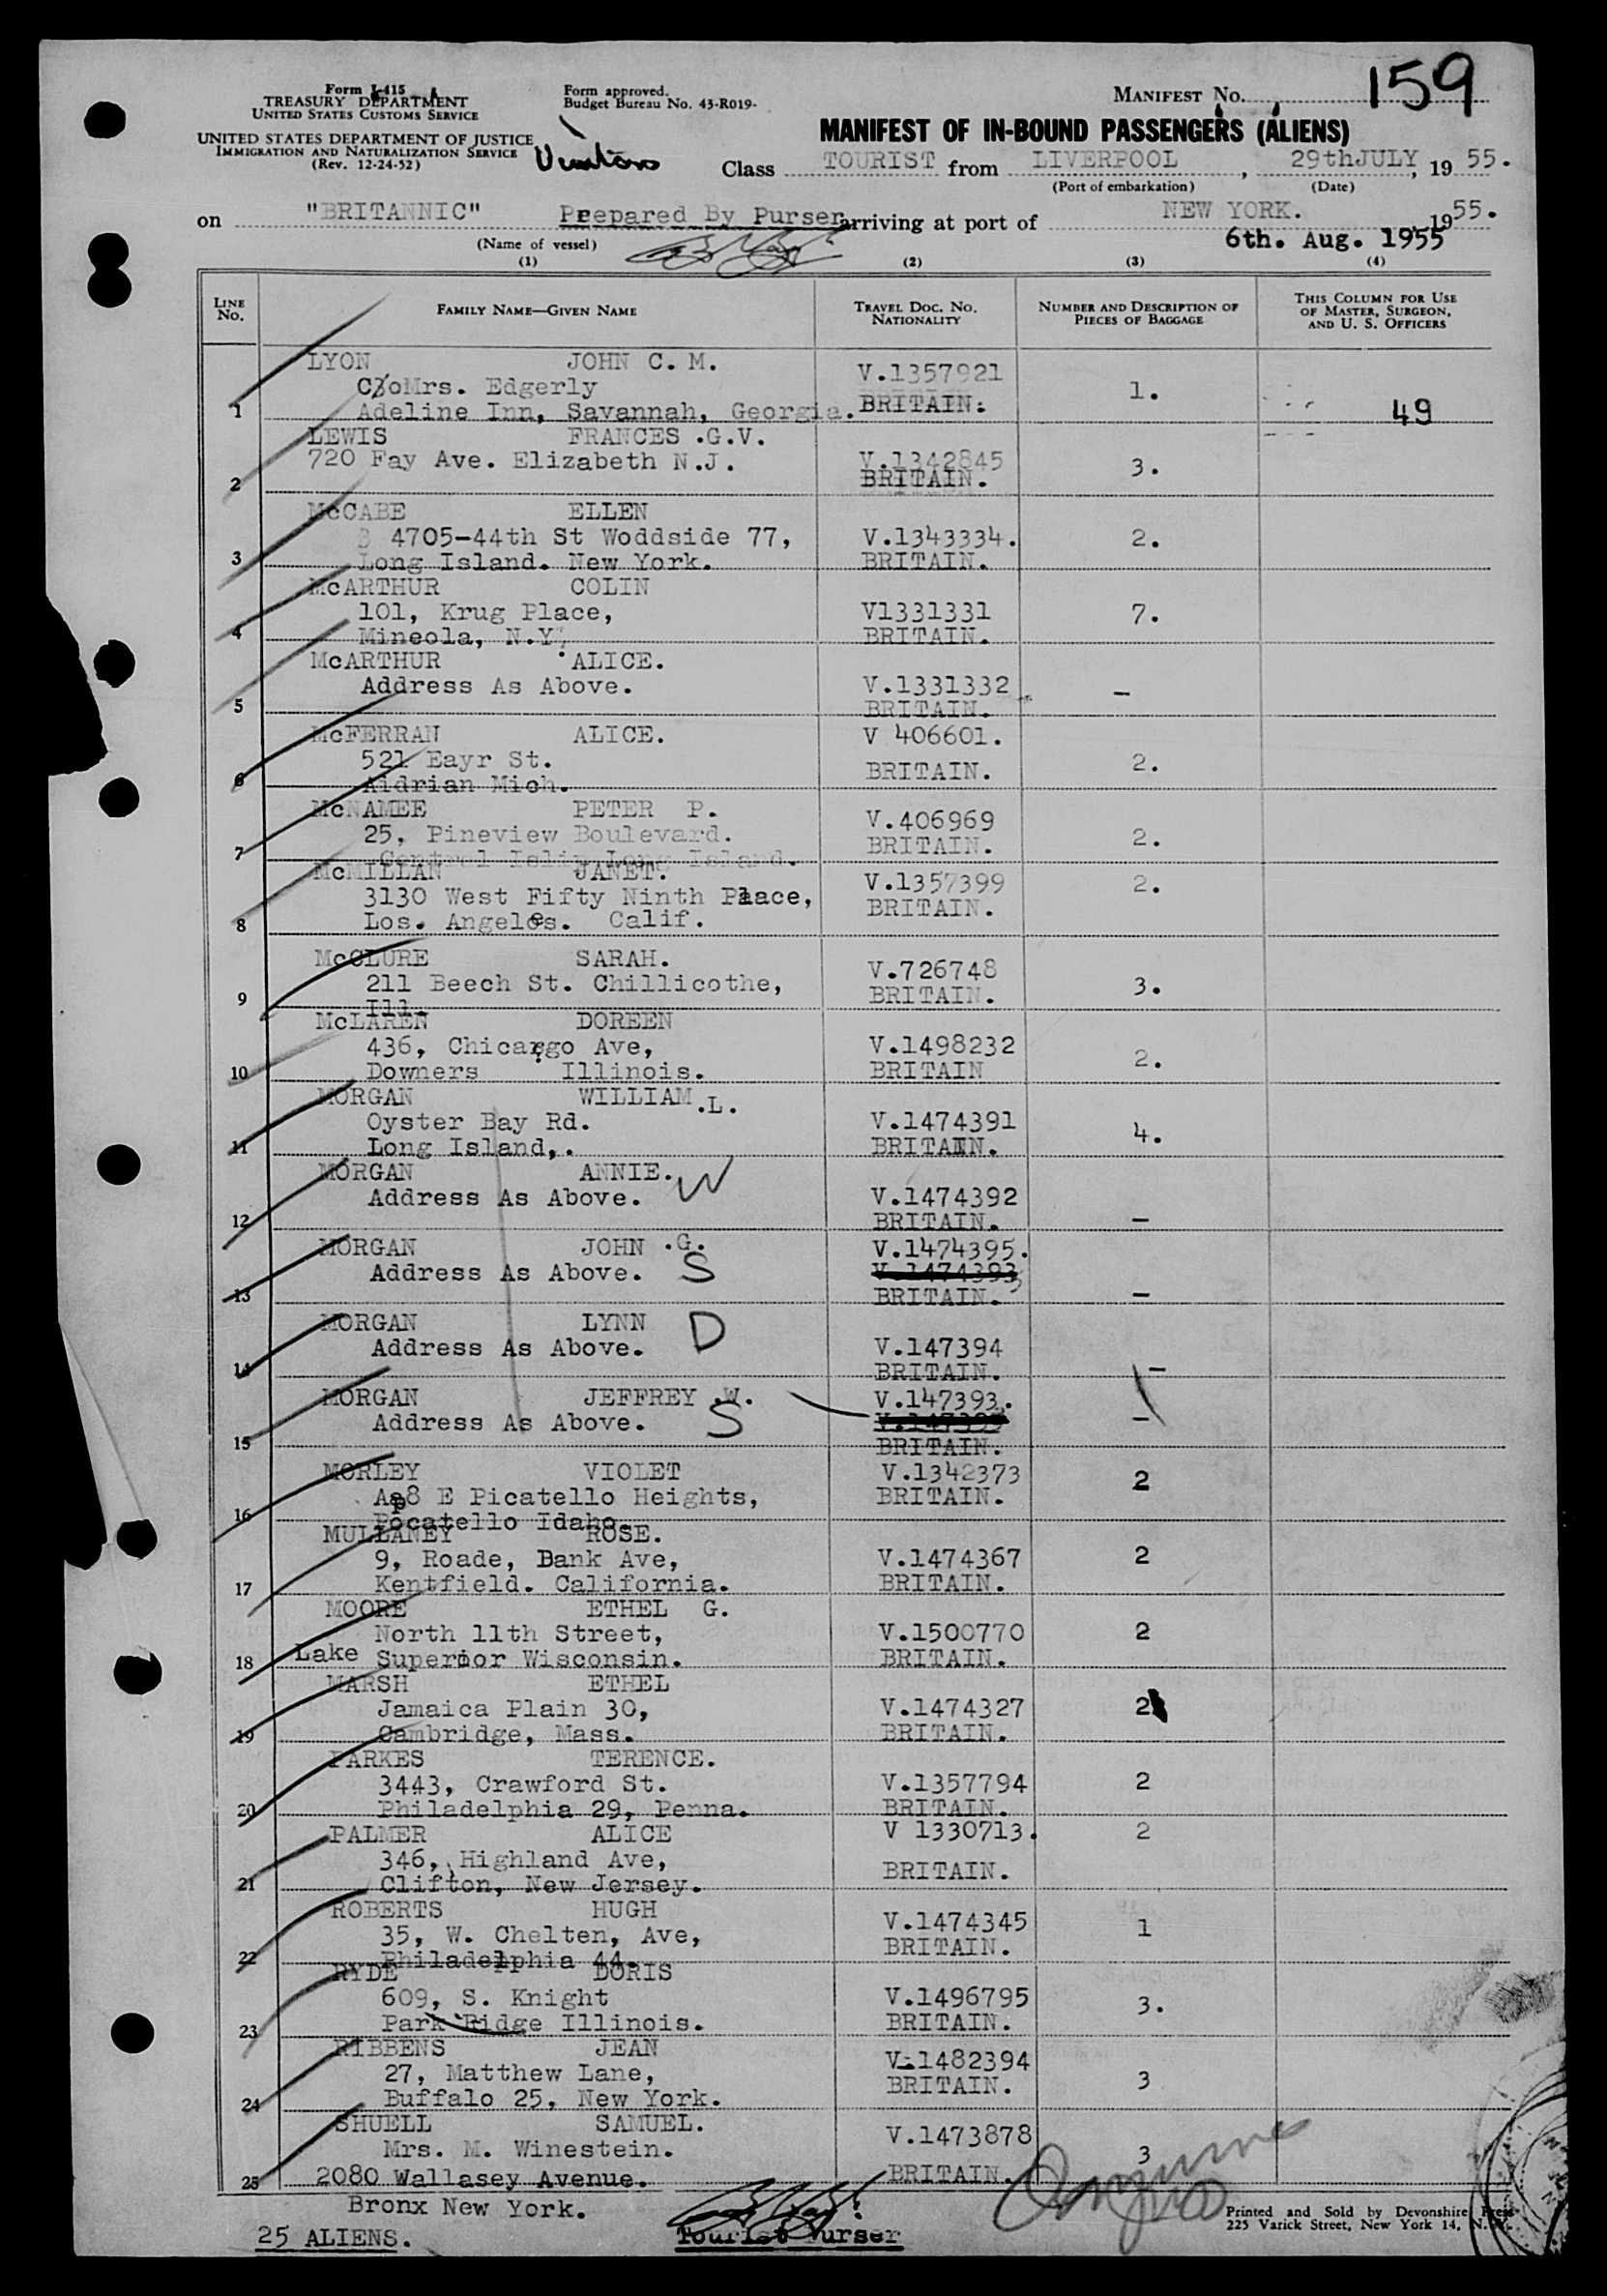 159
Form I-415
TREASURY DEPARTMENT
UNITED STATES CUSTOMS SERVICE
UNITED STATES DEPARTMENT OF JUSTICE
IMMIGRATION AND NATURALIZATION SERVICE
(Rev. 12-24-52)
Form approved.
Budget Bureau No. 43-R019-
MANIFEST NO.
MANIFEST OF IN-BOUND PASSENGERS (ALIENS)
Class TOURIST from LIVERPOOL, 29thJULY, 1955.
(Port of embarkation) (Date)
on "BRITANNIC" Prepared By Purser arriving at port of NEW YORK. 1955.
6th. Aug. 1955
(Name of vessel)
(1) (2) (3) (4)
LINE NO. FAMILY NAME—GIVEN NAME TRAVEL DOC. NO. NATIONALITY NUMBER AND DESCRIPTION OF PIECES OF BAGGAGE THIS COLUMN FOR USE OF MASTER, SURGEON, AND U. S. OFFICERS
LYON JOHN C. M. V.1357921
C/oMrs. Edgerly 1.
1 Adeline Inn, Savannah, Georgia. BRITAIN. 49
LEWIS FRANCES .G.V.
720 Fay Ave. Elizabeth N.J. V.1342845 3.
2 BRITAIN.
McCABE ELLEN
4705-44th St Woddside 77, V.1343334. 2.
3 Long Island. New York. BRITAIN.
McARTHUR COLIN
101, Krug Place, V1331331 7.
4 Mineola, N.Y. BRITAIN.
McARTHUR ALICE.
Address As Above. V.1331332 –
5 BRITAIN.
McFERRAN ALICE. V 406601.
521 Eayr St. BRITAIN. 2.
6 Aidrian Mich.
McNAMEE PETER P. V.406969
25, Pineview Boulevard. BRITAIN. 2.
7 Central Islip Long Island.
McMILLAN JANET. V.1357399 2.
3130 West Fifty Ninth Place, BRITAIN.
8 Los. Angeles. Calif.
McCLURE SARAH. V.726748
211 Beech St. Chillicothe, BRITAIN. 3.
9 Ill.
McLAREN DOREEN
436, Chicargo Ave, V.1498232 2.
10 Downers Illinois. BRITAIN
MORGAN WILLIAM .L.
Oyster Bay Rd. V.1474391 4.
11 Long Island,. BRITAIN.
MORGAN ANNIE. W
Address As Above. V.1474392
12 BRITAIN. –
MORGAN JOHN .G. V.1474395.
Address As Above. S V.1474393
13 BRITAIN. –
MORGAN LYNN D
Address As Above. V.147394
14 BRITAIN. –
MORGAN JEFFREY .W. V.147393.
Address As Above. S –
15 BRITAIN.
MORLEY VIOLET V.1342373 2
Ap8 E Picatello Heights, BRITAIN.
16 Pocatello Idaho.
MULLANEY ROSE.
9, Roade, Bank Ave, V.1474367 2
17 Kentfield. California. BRITAIN.
MOORE ETHEL G.
North 11th Street, V.1500770 2
18 Lake Superior Wisconsin. BRITAIN.
MARSH ETHEL
Jamaica Plain 30, V.1474327 2
19 Cambridge, Mass. BRITAIN.
PARKES TERENCE.
3443, Crawford St. V.1357794 2
20 Philadelphia 29, Penna. BRITAIN.
PALMER ALICE V 1330713. 2
346, Highland Ave, BRITAIN.
21 Clifton, New Jersey.
ROBERTS HUGH V.1474345 1
35, W. Chelten, Ave, BRITAIN.
22 Philadelphia 44.
RYDE DORIS
609, S. Knight V.1496795 3.
23 Park Ridge Illinois. BRITAIN.
RIBBENS JEAN V.1482394
27, Matthew Lane, BRITAIN. 3
24 Buffalo 25, New York.
SHUELL SAMUEL. V.1473878
Mrs. M. Winestein. 3
25 2080 Wallasey Avenue. BRITAIN.
Bronx New York.
25 ALIENS. Tourist Purser
Printed and Sold by Devonshire Press
225 Varick Street, New York 14, N. Y.